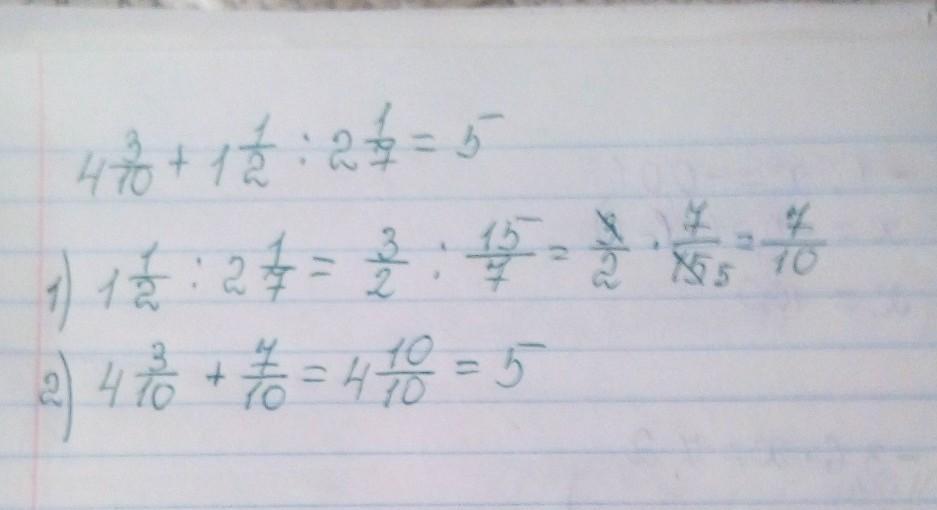 4 3/10 + 1 1/2 : 2 1/7 = 5
1) 1 1/2 : 2 1/7 = 3/2 : 15/7 = 3/2 · 7/15 5 = 7/10
2) 4 3/10 + 7/10 = 4 10/10 = 5